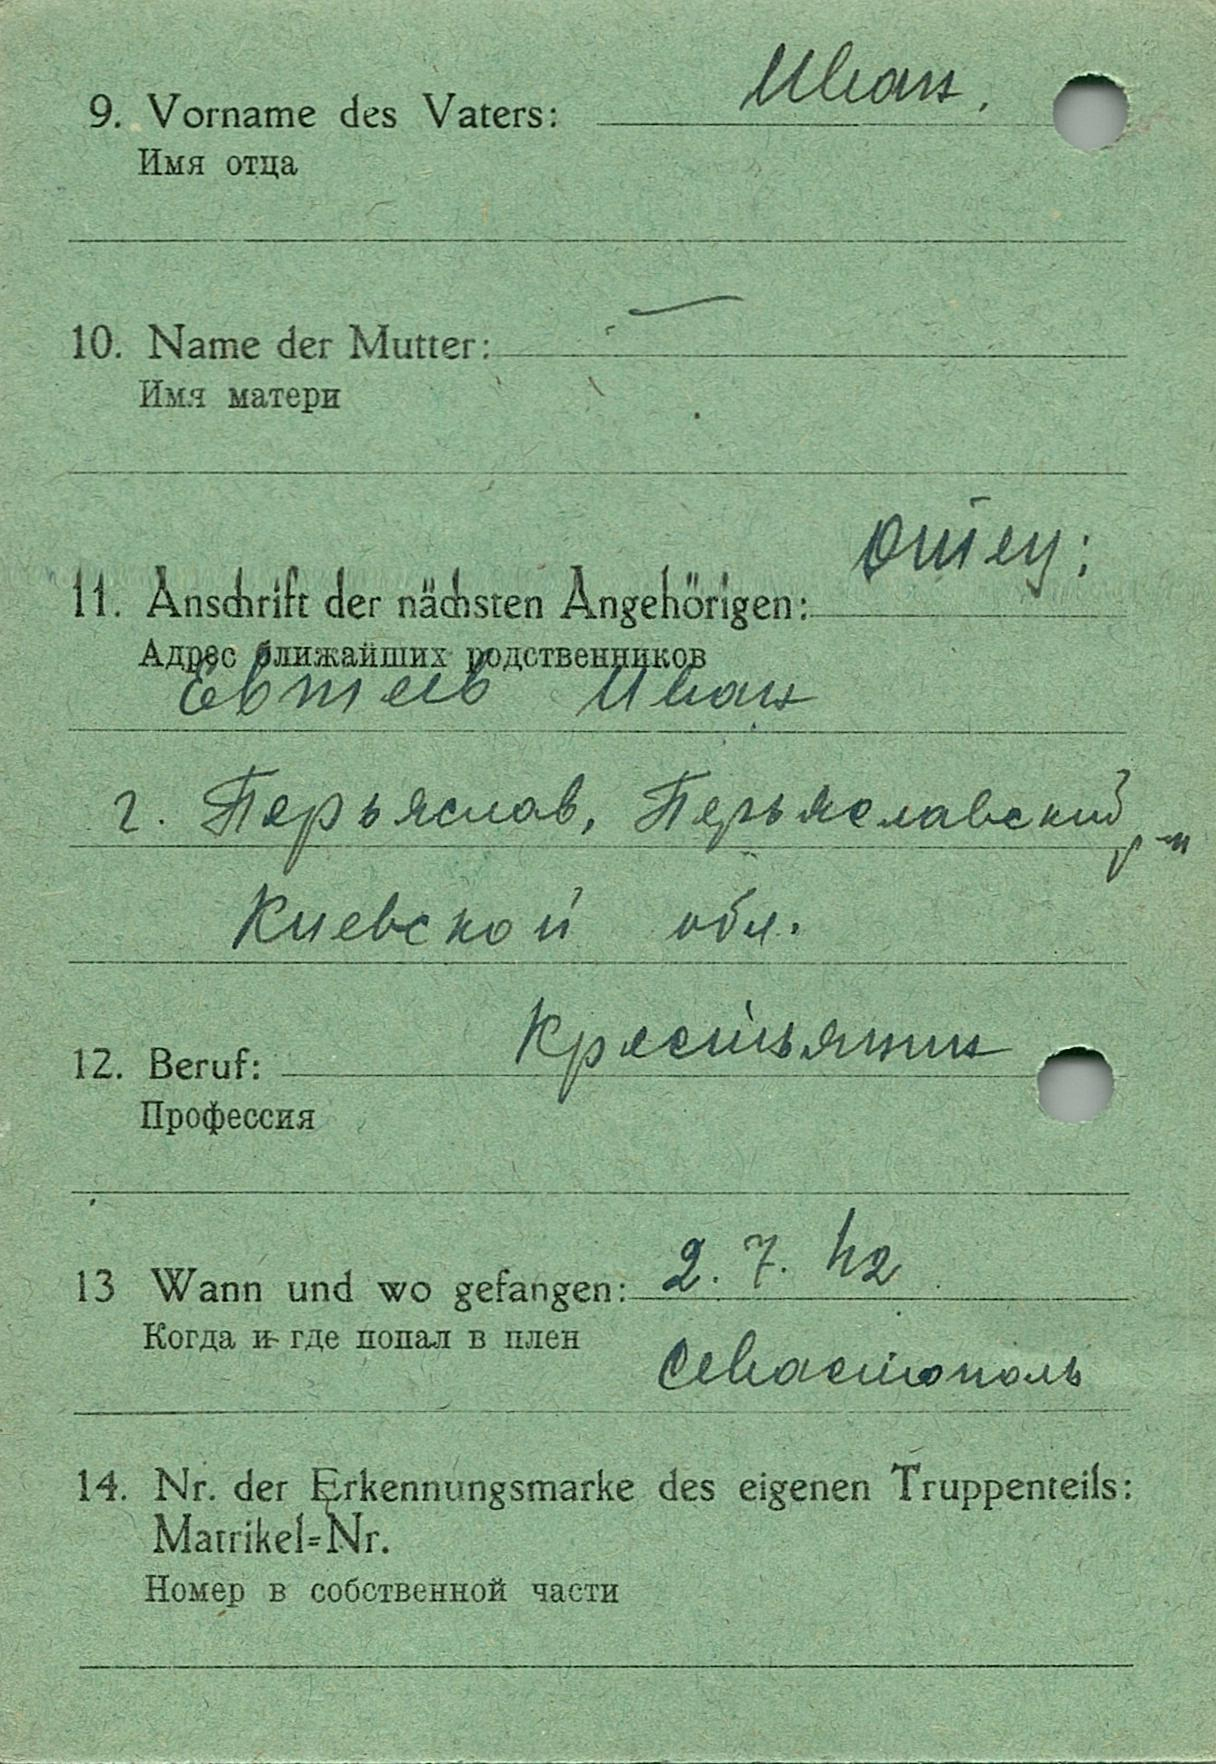 Иван.
9. Vorname des Vaters:
Имя отца
10. Name der Mutter: —
Имя матери
Отец:
11. Anschrift der nächsten Angehörigen:
Адрес ближайших родственников
Евтеев Иван
г. Перьяслав, Перьяславский р-н
Киевской обл.
Крестьянин
12. Beruf:
Профессия
13 Wann und wo gefangen: 2. 7. 42
Когда и где попал в плен
Севастополь
14. Nr. der Erkennungsmarke des eigenen Truppenteils:
Matrikel=Nr.
Номер в собственной части